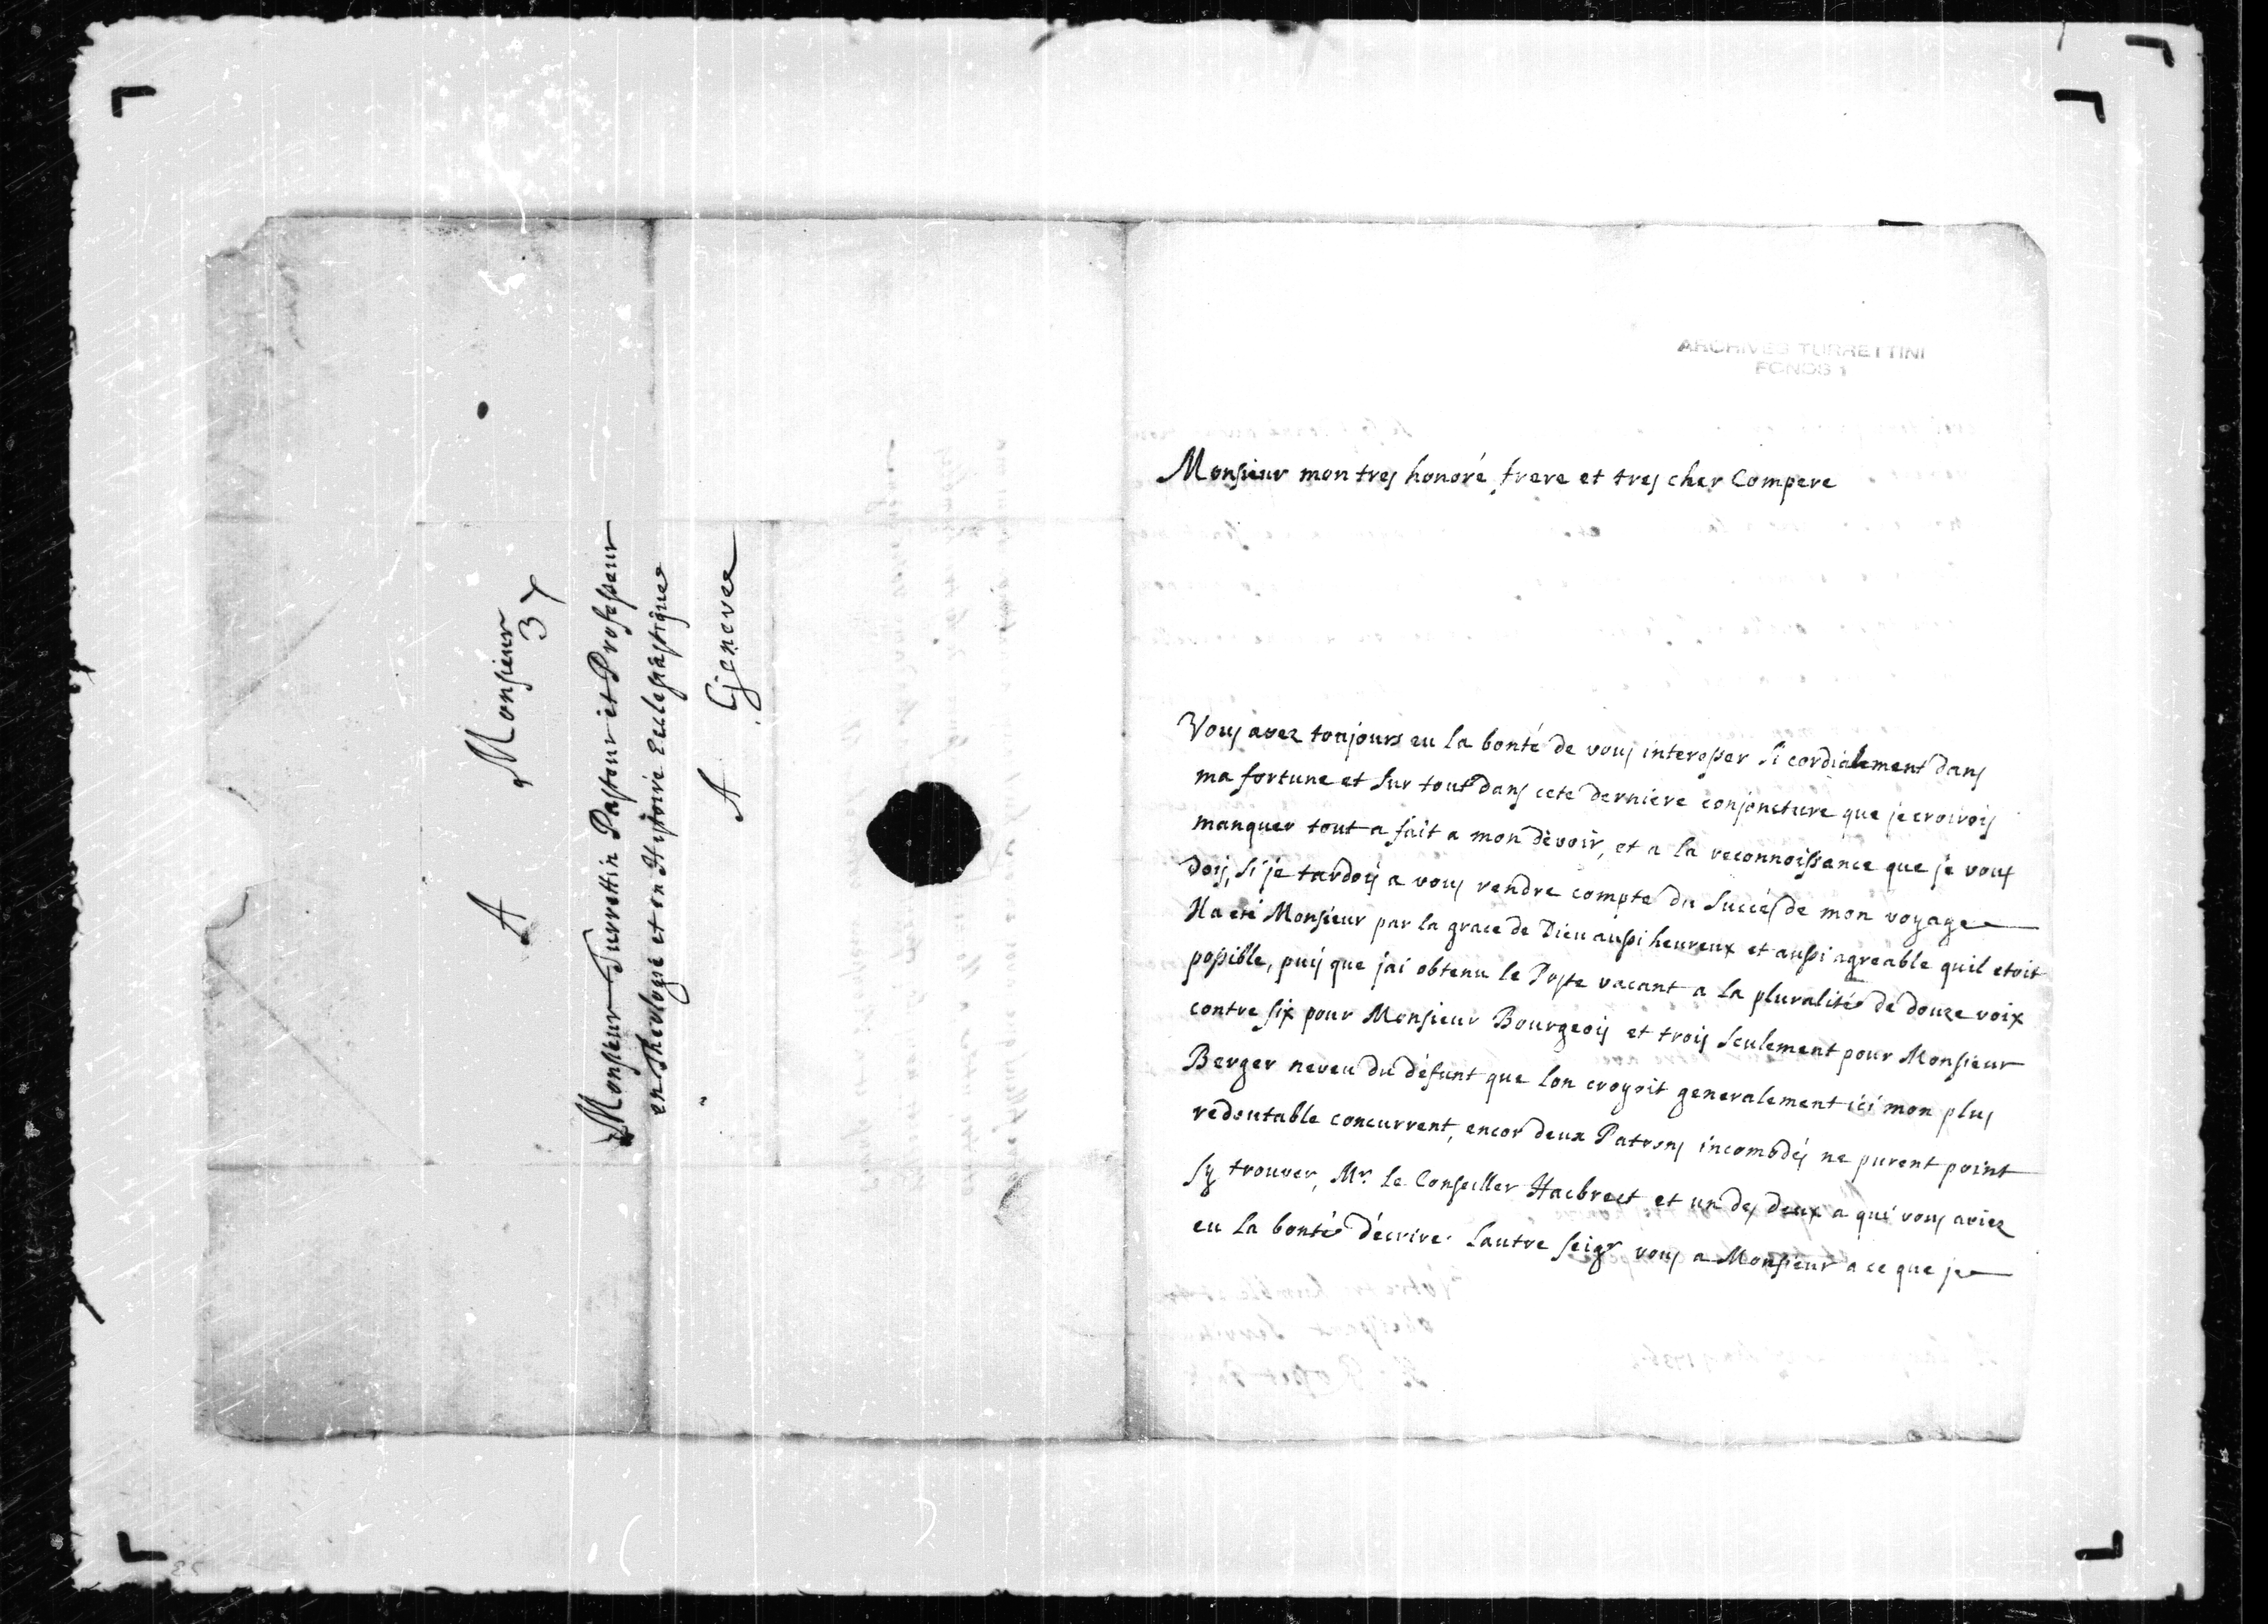 A Monsieur
3 γ
Monsieur Turrettin Pasteur et Professeur
en Theologie et en Histoire Ecclesiastique
A Geneve
ARCHIVES TURRETTINI
FONDS 1
Monsieur mon tres honoré frere et tres cher Compere
Vous avez toujours eu la bonté de vous interesser si cordialement dans
ma fortune et sur tout dans cete derniere conjoncture que je croirois
manquer tout a fait a mon devoir, et a la reconnoissance que je vous
dois, si je tardois a vous rendre compte du succés de mon voyage
Il a eté Monsieur par la grace de Dieu aussi heureux et aussi agreable quil etoit
possible, puis que jai obtenu le Poste vacant a la pluralité de douze voix
contre six pour Monsieur Bourgeois et trois seulement pour Monsieur
Berger neveu du défunt que lon croyoit generalement ici mon plus
redoutable concurrent, encor deux Patrons incomodés ne purent point
sy trouver, Mr. le Conseiller Hacbrect et un des deux a qui vous aviez
eu la bonté décrire. Lautre seigr vous a Monsieur a ce que je